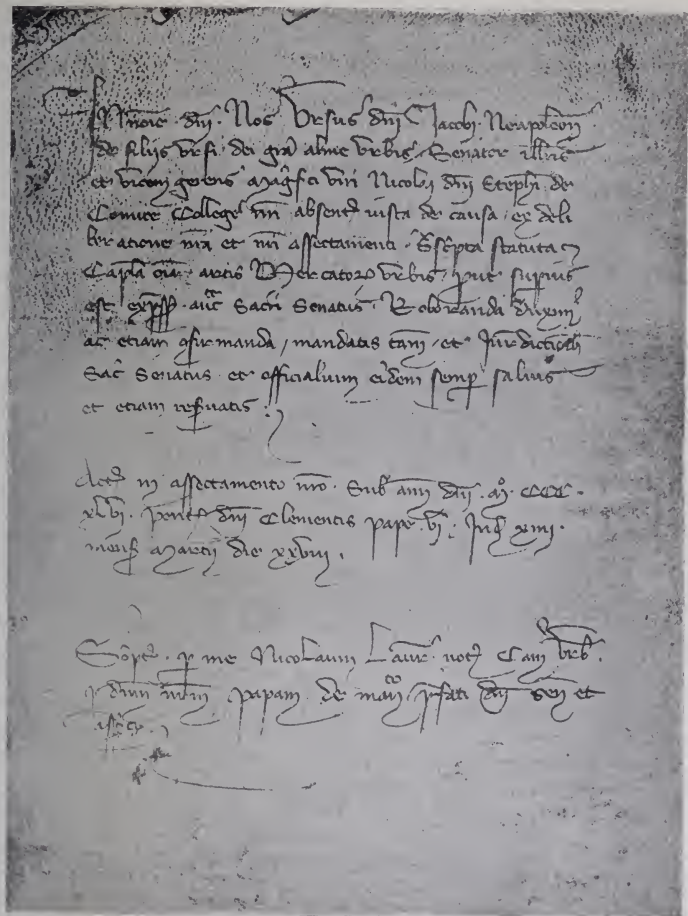 In noīe dnī. Nos Vrsus dnī Jacobi. Neapoleoñ
de filijs vrsi. dei gra alme vrbis Senator illris
et vicem gerens Magfici viri Nicolai dnī Stephi de
Comite College nri absentis uista de causa. ex deli
beratione nra et nri assectamenti. Sscpta statuta
Capla oia artis Mercator vrbis, put supius
est expssū. auct Sacri Senatus. Roboranda duxim
ac etiam cfirmanda, mandatis tam et Jurdictioñ
Sac Senatus et officialium eidem semp saluis
et etiam reseruatis.
Actū in assectamento nro. Sub anñ dnī. M. CCC.
xlvi. Pont dnī Clementis pape. vi. Ind xiiii.
mens Martij die xxviii.
Scpt. p me Nicolaum Laur. not Cam vrb.
p dnm nrm papam. de mañto pfati dnī señ et